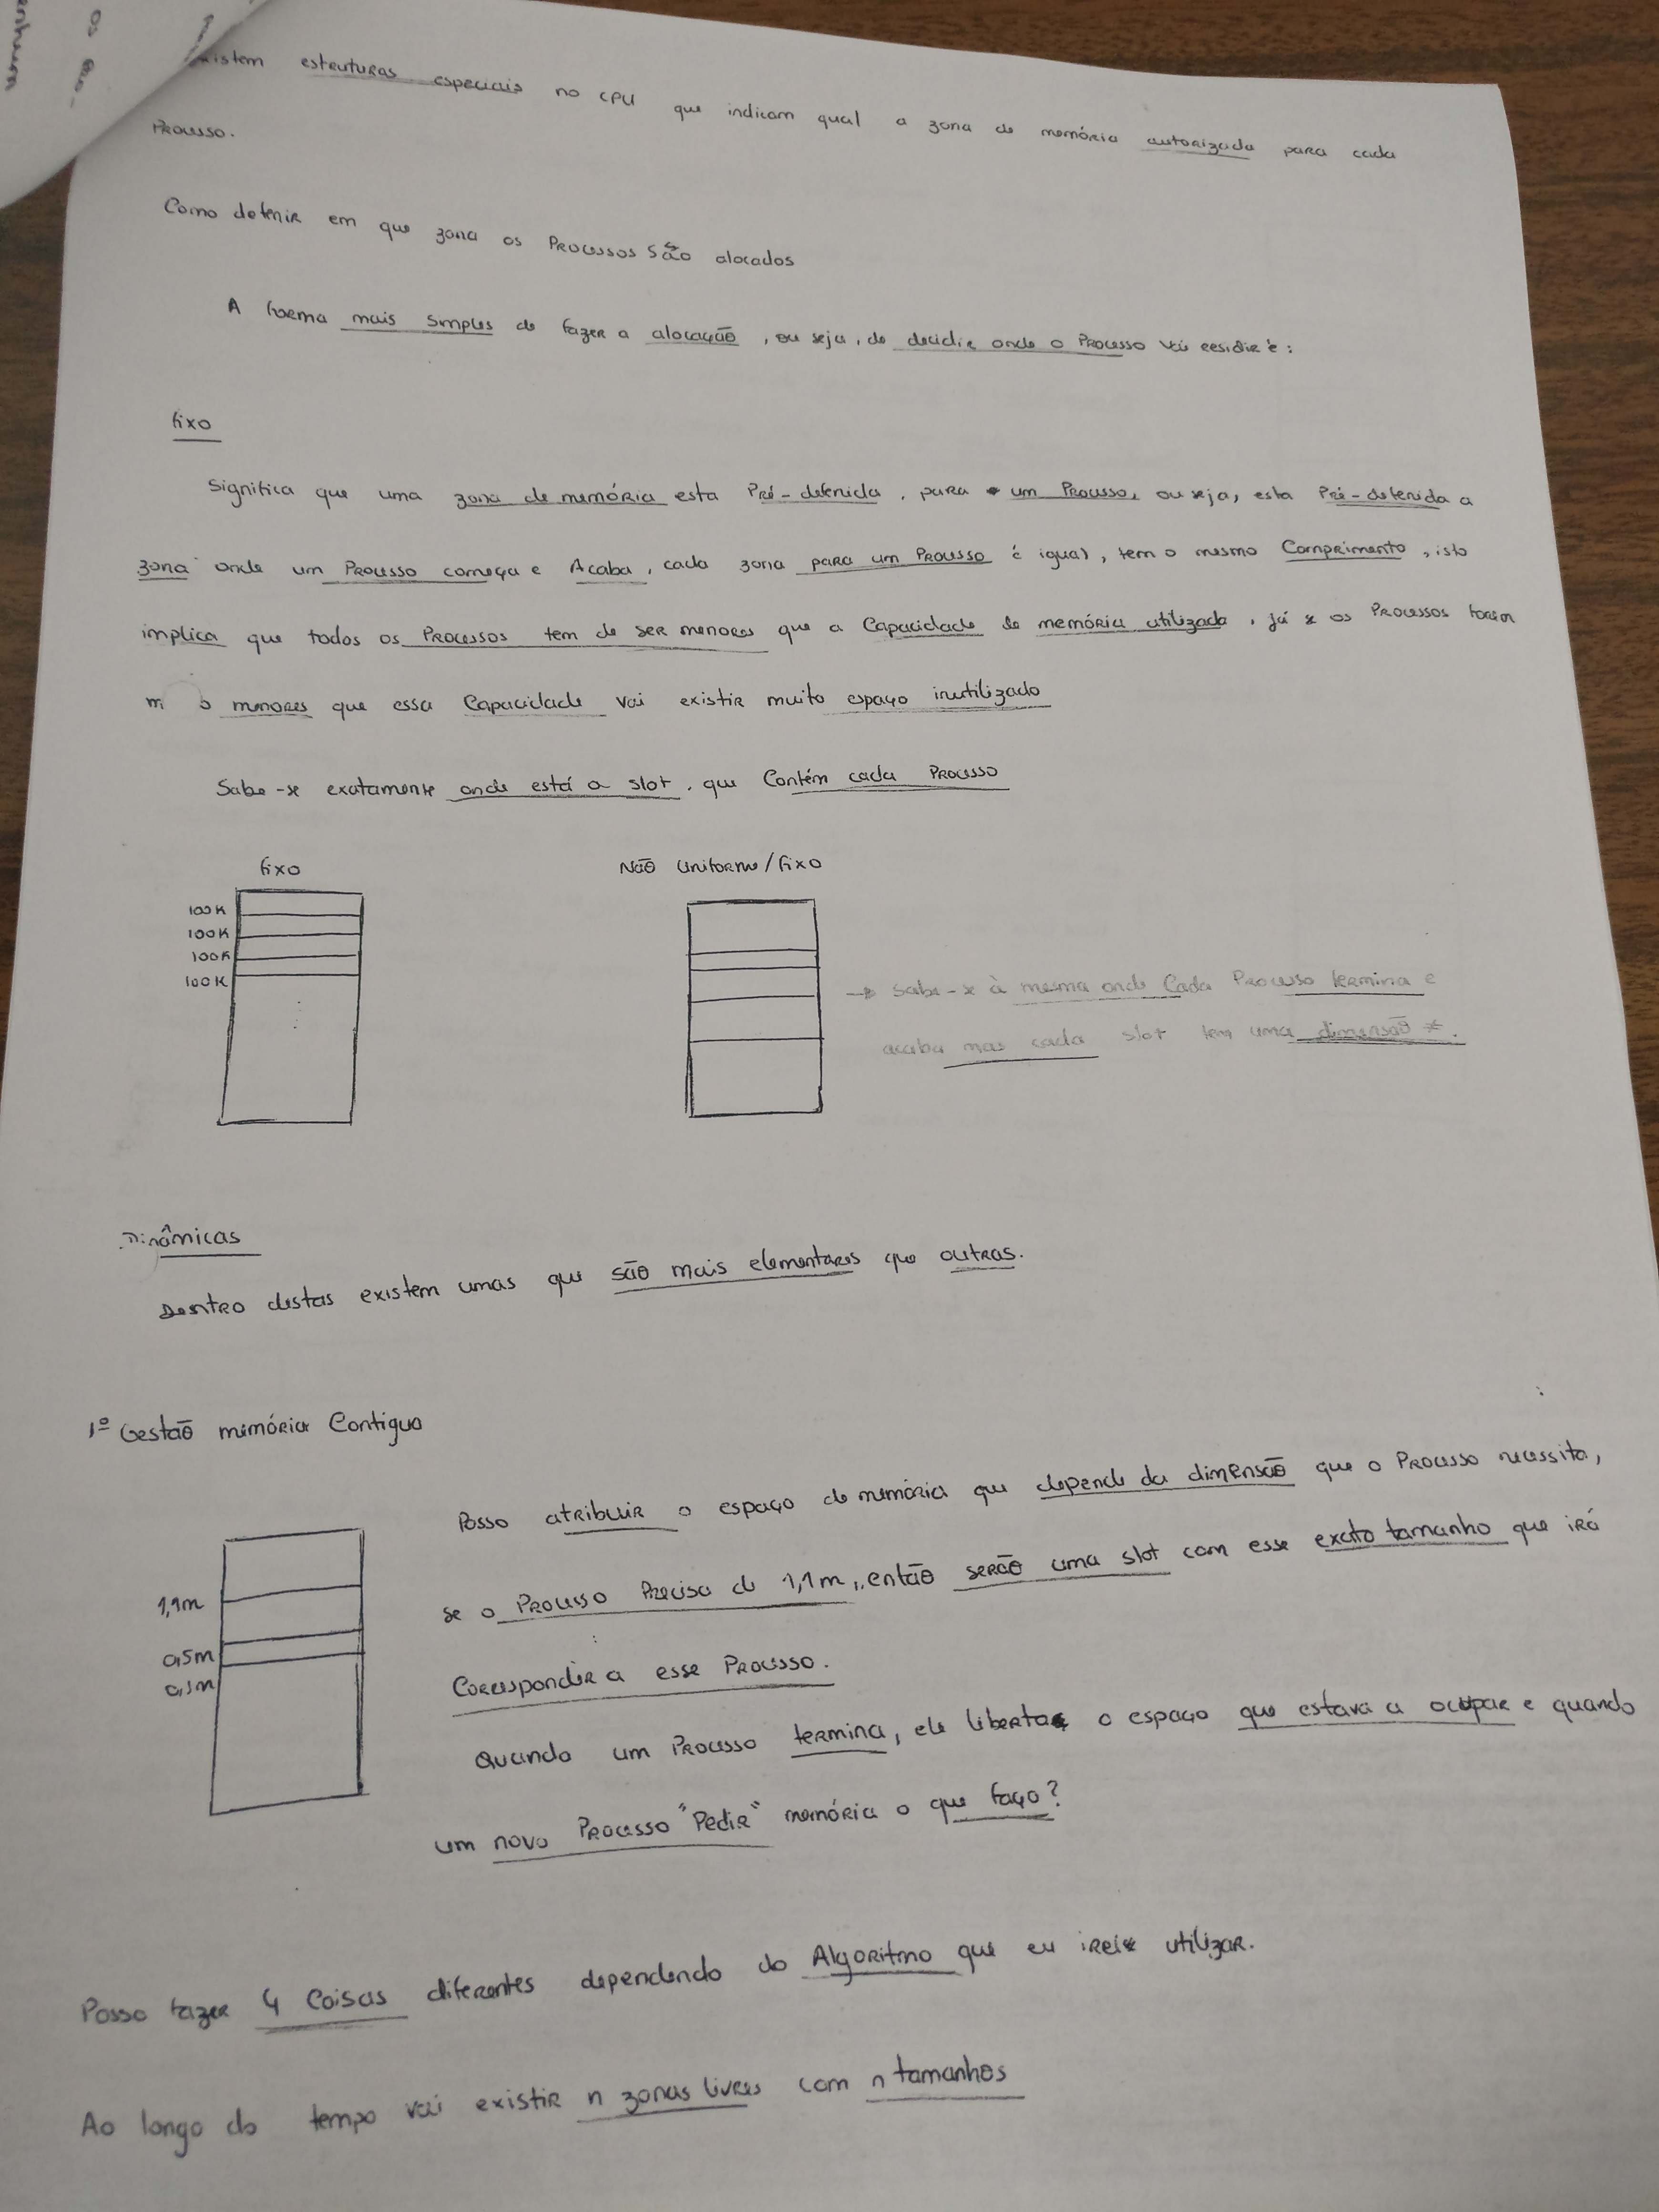 existem estruturas especiais no CPU que indicam qual a zona de memória autorizada para cada
Processo.
Como definir em que zona os Processos são alocados
A forma mais simples de fazer a alocação, ou seja, de decidir onde o Processo vai residir é:
fixo
Significa que uma zona de memória esta Pré-definida, para um Processo, ou seja, esta Pré-definida a
zona onde um Processo começa e Acaba, cada zona para um Processo é igual, tem o mesmo Comprimento, isto
implica que todos os Processos tem de ser menores que a Capacidade de memória utilizada, já se os Processos forem
menores que essa Capacidade vai existir muito espaço inutilizado
Sabe-se exatamente onde está a slot, que Contém cada Processo
fixo
Não Uniforme/fixo
100K
100K
100K
100K
→ Sabe-se à mesma onde Cada Processo termina e
acaba mas cada slot tem uma dimensão ≠.
Dinâmicas
Dentro destas existem umas que são mais elementares que outras.
1º Gestão memória Contigua
Posso atribuir o espaço de memória que depende da dimensão que o Processo necessita,
se o Processo Precisa de 1,1m, então serão uma slot com esse exato tamanho que irá
Corresponder a esse Processo.
1,1m
0,5m
Quando um Processo termina, ele liberta o espaço que estava a ocupar e quando
um novo Processo "Pedir" memória o que faço?
Posso fazer 4 Coisas diferentes dependendo do Algoritmo que eu irei utilizar.
Ao longo do tempo vai existir n zonas livres com n tamanhos